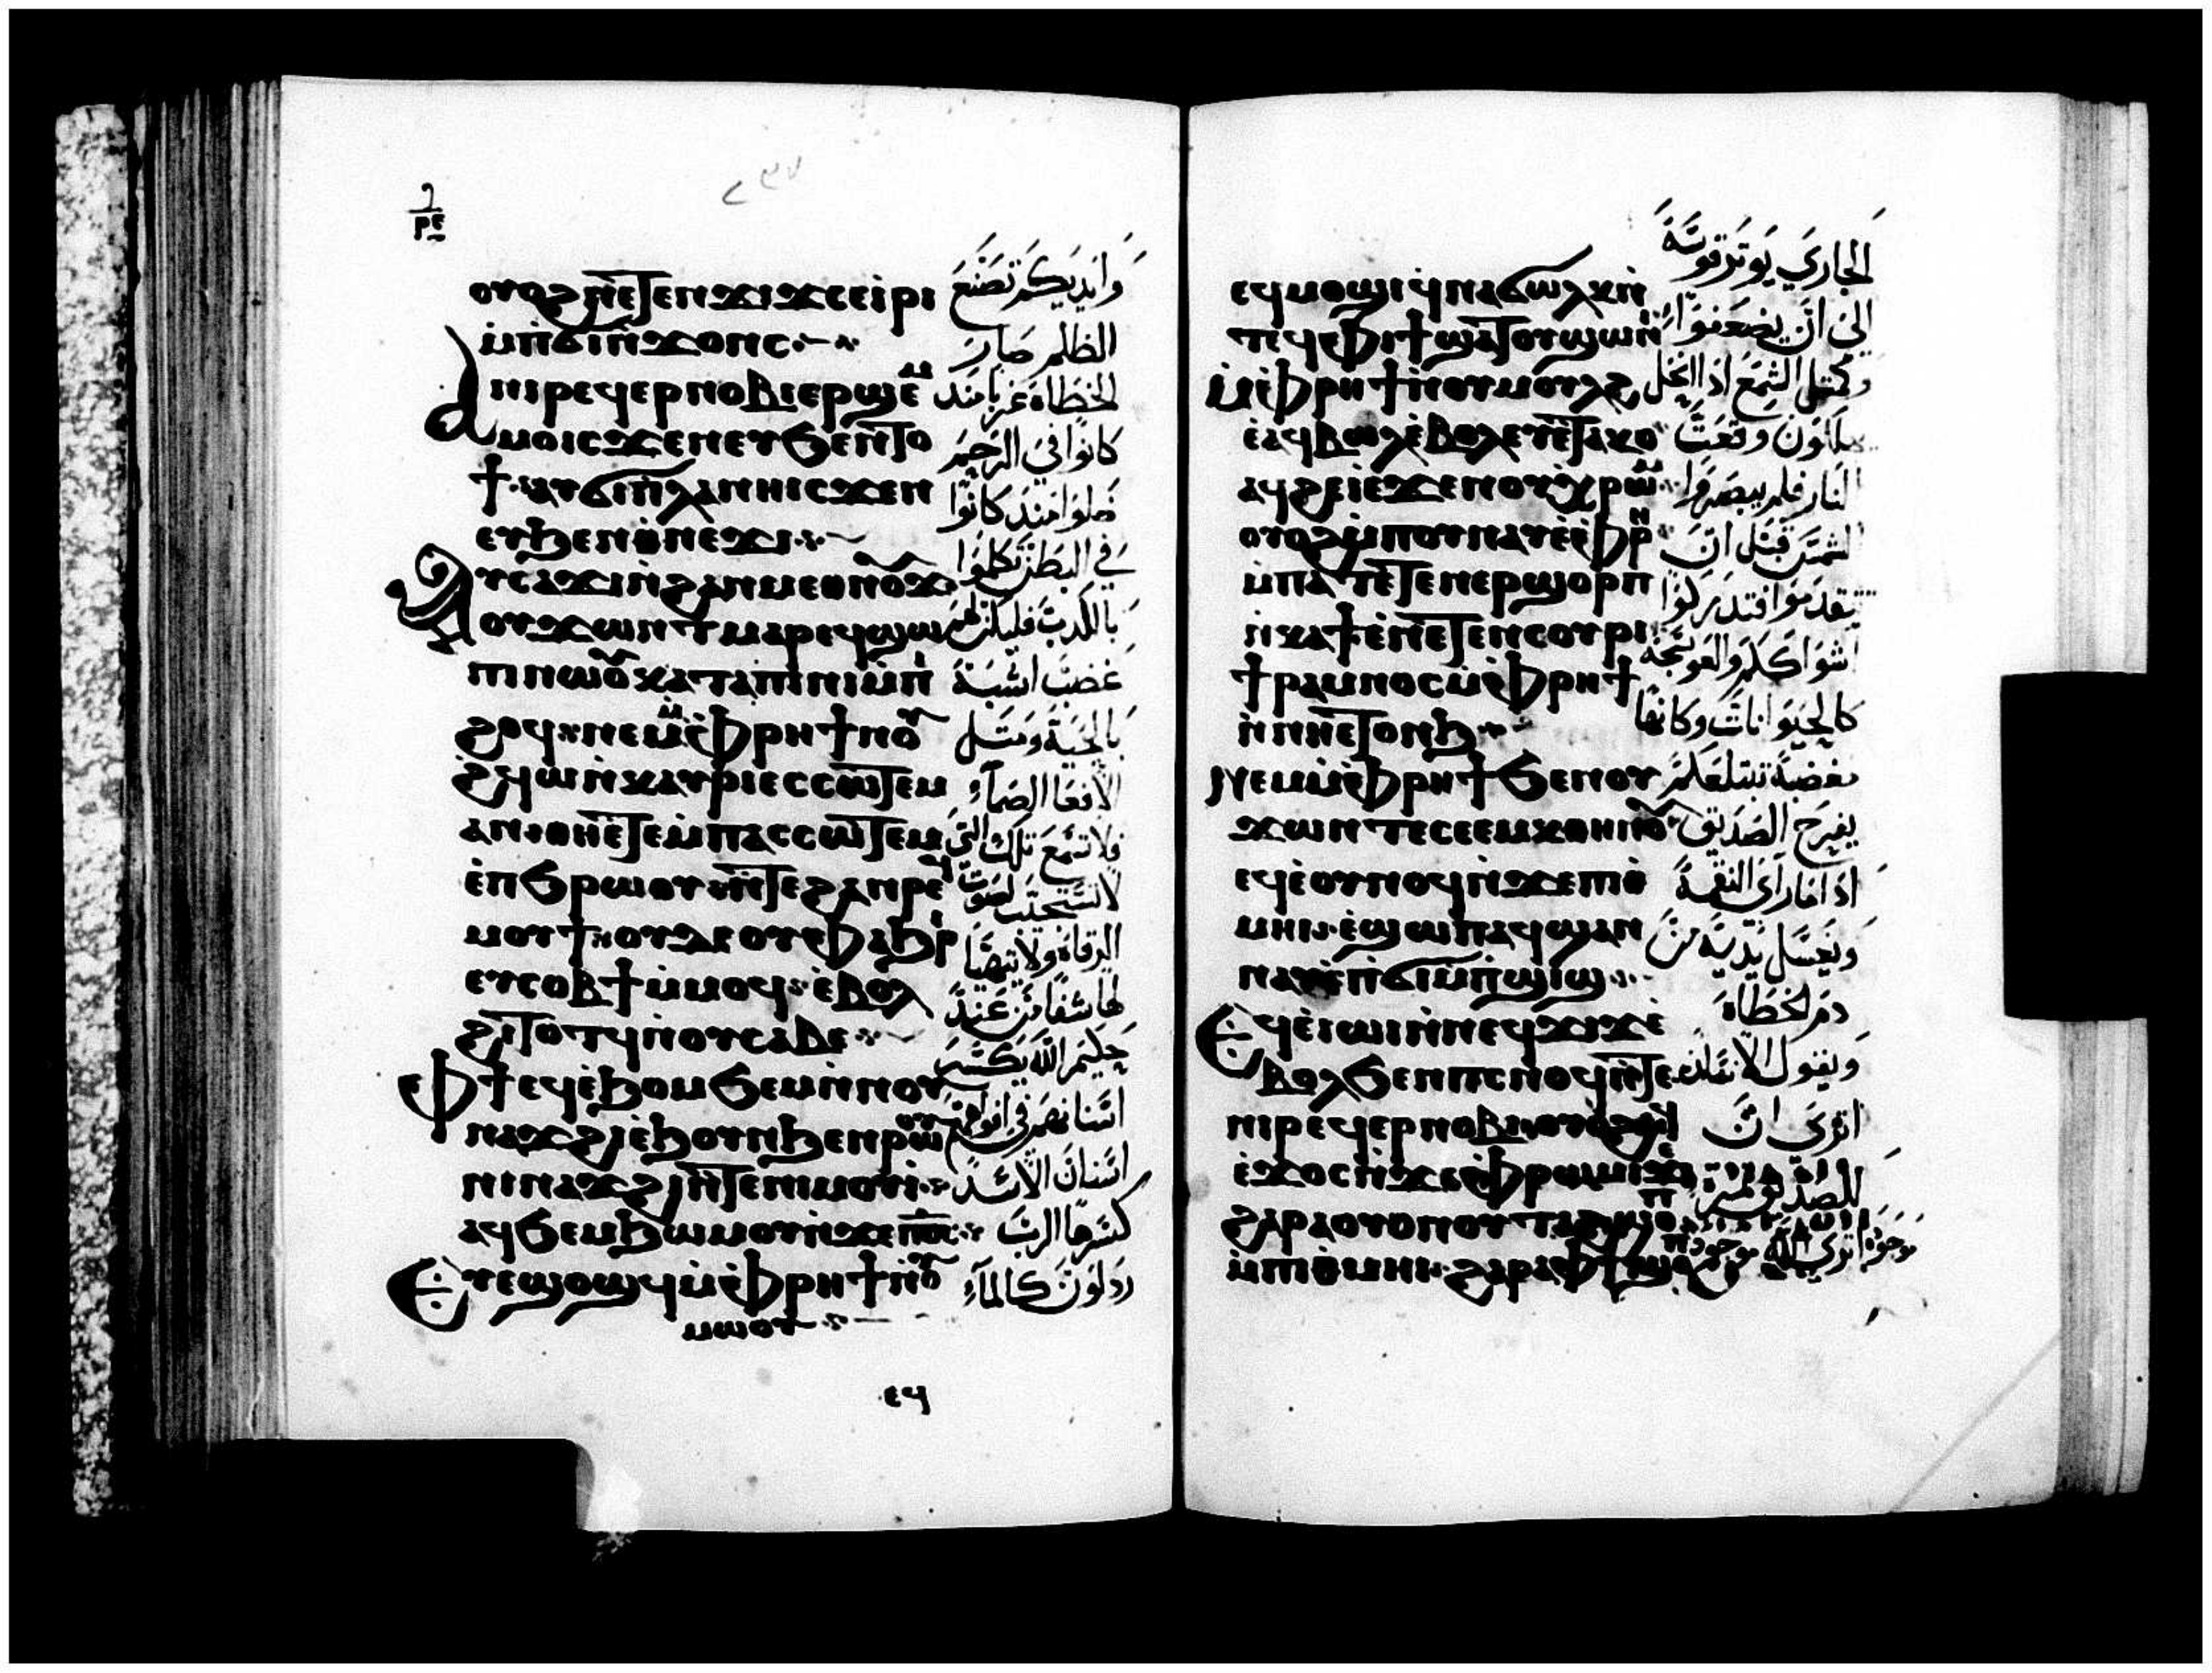 ⲣⲉ
٢٣٧
ⲟⲩⲟϩ ⲛⲉⲧⲉⲛϫⲓϫ ⲥⲉⲓⲣⲓ
ⲙⲡϭⲓⲛϫⲟⲛⲥ
ⲁⲛⲓⲣⲉϥⲉⲣⲛⲟⲃⲓ ⲉⲣϣⲉⲙ
ⲙⲟ ⲓⲥϫⲉⲛ ⲉⲩϧⲉⲛ ⲧⲟ
ϯ ⲁⲩϭⲓⲡⲗⲁⲛⲏ ⲓⲥϫⲉⲛ
ⲉⲩϧⲉⲛ ⲑⲛⲉϫⲓ
ⲁⲩⲥⲁϫⲓ ⲛϩⲁⲛⲙⲉⲑⲛⲟⲩϫ
ⲟⲩϫⲱⲛⲧ ⲙⲁⲣⲉϥϣⲱ
ⲡⲓ ⲛⲱⲟⲩ ⲕⲁⲧⲁ ⲡⲓⲛⲓ ⲙⲡⲓ
ϩⲟϥ ⲛⲉⲙ ⲙⲫⲣⲏϯ ⲛⲟⲩ
ϩϥⲱ ⲛⲕⲟⲩⲣ ⲓⲉ ⲥⲥⲱⲧⲉⲙ
ⲁⲛ ⲑⲏⲉⲧⲉ ⲙⲡⲁⲥⲥⲱⲧⲉⲙ
ⲉⲡϧⲣⲱⲟⲩ ⲛⲧⲉ ϩⲁⲛⲣⲉϥ
ⲙⲟⲩϯ ⲟⲩⲇⲉ ⲟⲩⲫⲁϧⲣⲓ
ⲉⲩⲥⲟⲃϯ ⲙⲙⲟϥ ⲉⲃⲟⲗ
ϩⲓⲧⲟⲧϥ ⲛⲟⲩⲥⲁⲃⲉ
ⲫϯ ⲉϥⲉϧⲟⲙϧⲉⲙ ⲛⲛⲟⲩ
ⲛⲁϫϩⲓ ⲉϧⲟⲩⲛ ϧⲉⲛ ⲣⲱⲟⲩ
ⲛⲓⲛⲁϫϩⲓ ⲛⲧⲉ ⲛⲓⲙⲟⲩⲓ
ⲁϥϧⲉⲙϧⲱⲙⲟⲩ ⲛϫⲉ ⲡⲟⲥ
ⲉⲩⲉϣⲟϣϥ ⲙⲫⲣⲏϯ ⲛⲟⲩ
ⲙⲱⲟⲩ
ⲉϥ
وايديكم تصنع
الظلم صار
الخطاه غربا منذ
كانوا في الرحم
ضلوا منذ كانوا
في البطن تكلموا
بالكدب فليكن لهم
غضب اشبه
بالحية ومتل
الافعا الصمآء
فلا تسمع تلك التي
لاتستجيب لصوت
الرقاه ولا يتهيا
لها شفا من عند
حكيم الله يكسر
اسنانهم في افواههم
اسنان الاسد
كسرها الرب
ردلون كالمآء
ⲉϥⲙⲟϣⲓ ϥⲛⲁϭⲱⲗⲕ ⲛ
ⲧⲉϥⲫⲓϯ ϣⲁⲧⲟⲩϣⲱⲛⲓ
ⲙⲫⲣⲏϯ ⲛⲟⲩⲙⲟⲩⲗϩ
ⲉⲁϥⲃⲱⲗ ⲉⲃⲟⲗ ⲉⲩⲉⲧⲁⲕⲟ
ⲁϥϩⲉⲓ ⲉϫⲉⲛ ⲟⲩⲭⲣⲱⲙ
ⲟⲩⲟϩ ⲙⲡⲟⲩⲛⲁⲩ ⲉⲫⲣⲏ
ⲙⲡⲁⲧⲉⲧⲉⲛⲉⲣϣⲟⲣⲡ
ⲛⲕⲁϯ ⲉⲛⲉⲧⲉⲛⲥⲟⲩⲣⲓ
ϯⲣⲁⲙⲛⲟⲥ ⲙⲫⲣⲏϯ
ⲛⲛⲏⲉⲧⲟⲛϧ
ⲛⲉⲙ ⲙⲫⲣⲏϯ ϧⲉⲛ ⲟⲩ
ϫⲱⲛⲧ ⲉⲥⲉⲉⲙⲕⲑⲏⲛⲟⲩ
ⲉϥⲉⲟⲩⲛⲟϥ ⲛϫⲉ ⲡⲓⲑ
ⲙⲏⲓ ⲉϣⲱⲡ ⲁϥϣⲁⲛ
ⲛⲁⲩ ⲉⲡϭⲓⲙⲡϣⲓϣ
ⲉϥⲉⲓⲱⲓ ⲛⲛⲉϥϫⲓϫ ⲉ
ⲃⲟⲗ ϧⲉⲛ ⲡⲥⲛⲟϥ ⲛⲧⲉ
ⲛⲓⲣⲉϥⲉⲣⲛⲟⲃⲓ ⲟⲩⲟϩ ϥ
ⲉϫⲟⲥ ⲛϫⲉ ⲫⲣⲱⲙⲓ ϫⲉ
ϩⲁⲣⲁ ⲟⲩⲟⲛ ⲟⲩⲧⲁϩ ϣⲟⲡ
ⲙⲡⲓⲑⲙⲏⲓ ϩⲁⲣⲁ ⲫϯ ϣⲟⲡ
الجاري يوتر قوسه
الى ان يضعفوا
وكمتل الشمع اذا انحل
يهلكون وقعت
النار فلم يبصروا
الشمس قبل ان
يتقدموا فتدركوا
اشواككم والعوسجه
كالحيوانات وكانها
بغضبة تبتلعكم
يفرح الصديق
اذا ما رآى النقمة
ويغسل يديه من
دم الخطاه
ويقول الانسان
اترى ان
للصديق ثمره
موجوده اترى الله موجود